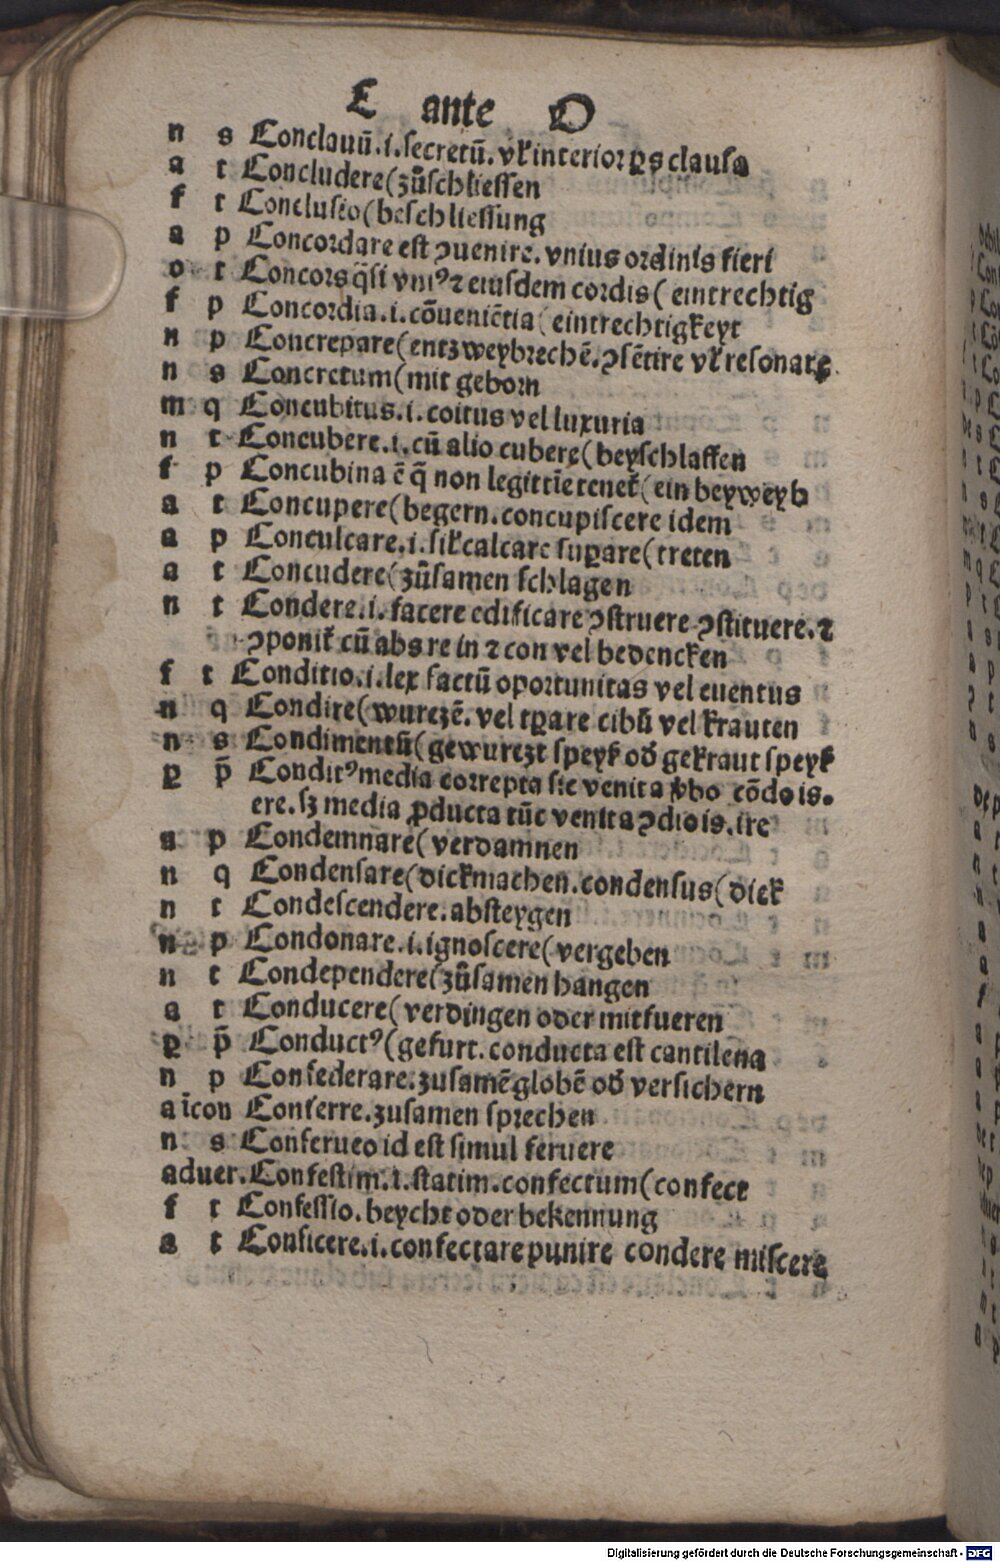 C ante O
n s Conclauū.i.secretū.vl' interior ꝑs clausa
a t Concludere(zůschliessen
f t Conclusio(beschliessung
a p Concordare est ꝯuenire. vnius ordinis fieri
o t Concors q̄si vniꝰ ⁊ eiusdem cordis(eintrechtig
f p Concordia.i.cōueniētia(eintrechtigkeyt
n p Concrepare(entzweybrechē.ꝯsētire vl' resonare
n s Concretum(mit geborn
m q Concubitus.i.coitus vel luxuria
n t Concubere.i.cū alio cubere(beyschlaffen
f p Concubina ē q̄ non legittīe tenet'(ein beyweyb
a t Concupere(begern.concupiscere idem
a p Conculcare.i.sil'calcare suꝑare(treten
a t Concudere(zůsamen schlagen
n t Condere.i.facere edificare ꝯstruere ꝯstituere.⁊
ꝯponit' cū abs re in ⁊ con vel bedencken
f t Conditio.i.lex factū oportunitas vel euentus
n q Condire(wurczē.vel tꝑare cibū vel krauten
n s Condimentū(gewurczt speyß od' gekraut speyß
ꝑ p̄ Conditꝰ media correpta sic venit a v'bo cōdo is.
ere.sꝫ media ꝓducta tūc venit a ꝯdio is.ire
a p Condemnare(verdamnen
n q Condensare(dickmachen.condensus(dick
n t Condescendere.absteygen
n p Condonare.i.ignoscere(vergeben
n t Condependere(zůsamen hangen
a t Conducere(verdingen oder mitfueren
ꝑ p̄ Conductꝰ(gefurt.conducta est cantilena
n p Confederare.zusamēglobē od' versichern
a īcon Conferre.zusamen sprechen
n s Conferueo id est simul feruere
aduer.Confestim.i.statim.confectum(confect
f t Confessio.beycht oder bekennung
a t Conficere.i.confectare punire condere miscere
Digitalisierung gefördert durch die Deutsche Forschungsgemeinschaft - DFG